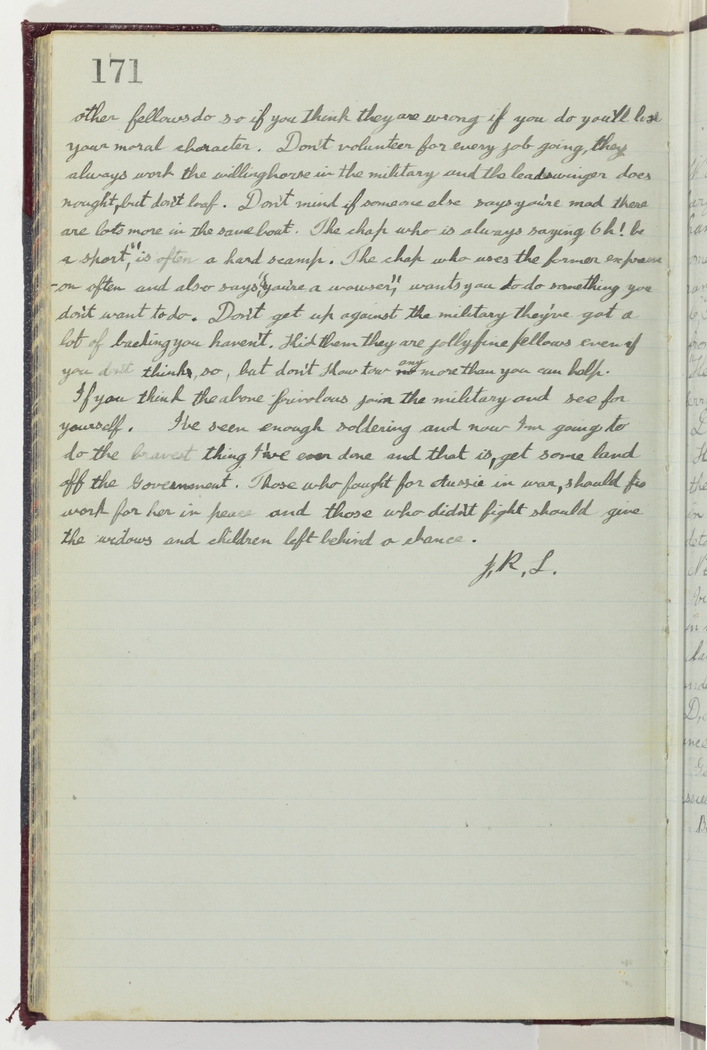 171
other fellows do so if you think they are wrong if you do you'll lose
your moral character. Don't volunteer for every job going, they
always work the willing horse in the military and the leadswinger does
nought, but don't loaf. Don't mind if someone else says you're mad there
are lots more in the same boat. The chap who is always saying "Oh! be
a sport", is often a hard scamp. The chap who uses the former express
-on often and also says, "you're a wowser", wants you to do something you
don't want to do. Don't get up against the military they've got a
lot of backing you haven't. Kid them they are jolly fine fellows even if
you don't think so, but don't Kow tow any more than you can help.
If you think the above frivolous join the military and see for
yourself. I've seen enough soldering and now I'm going to
do the bravest thing I've ever done and that is, get some land
off the Government. Those who fought for Aussie in war, should
work for her in peace and those who didn't fight should give
the widows and children left behind a chance.
J.R.L.